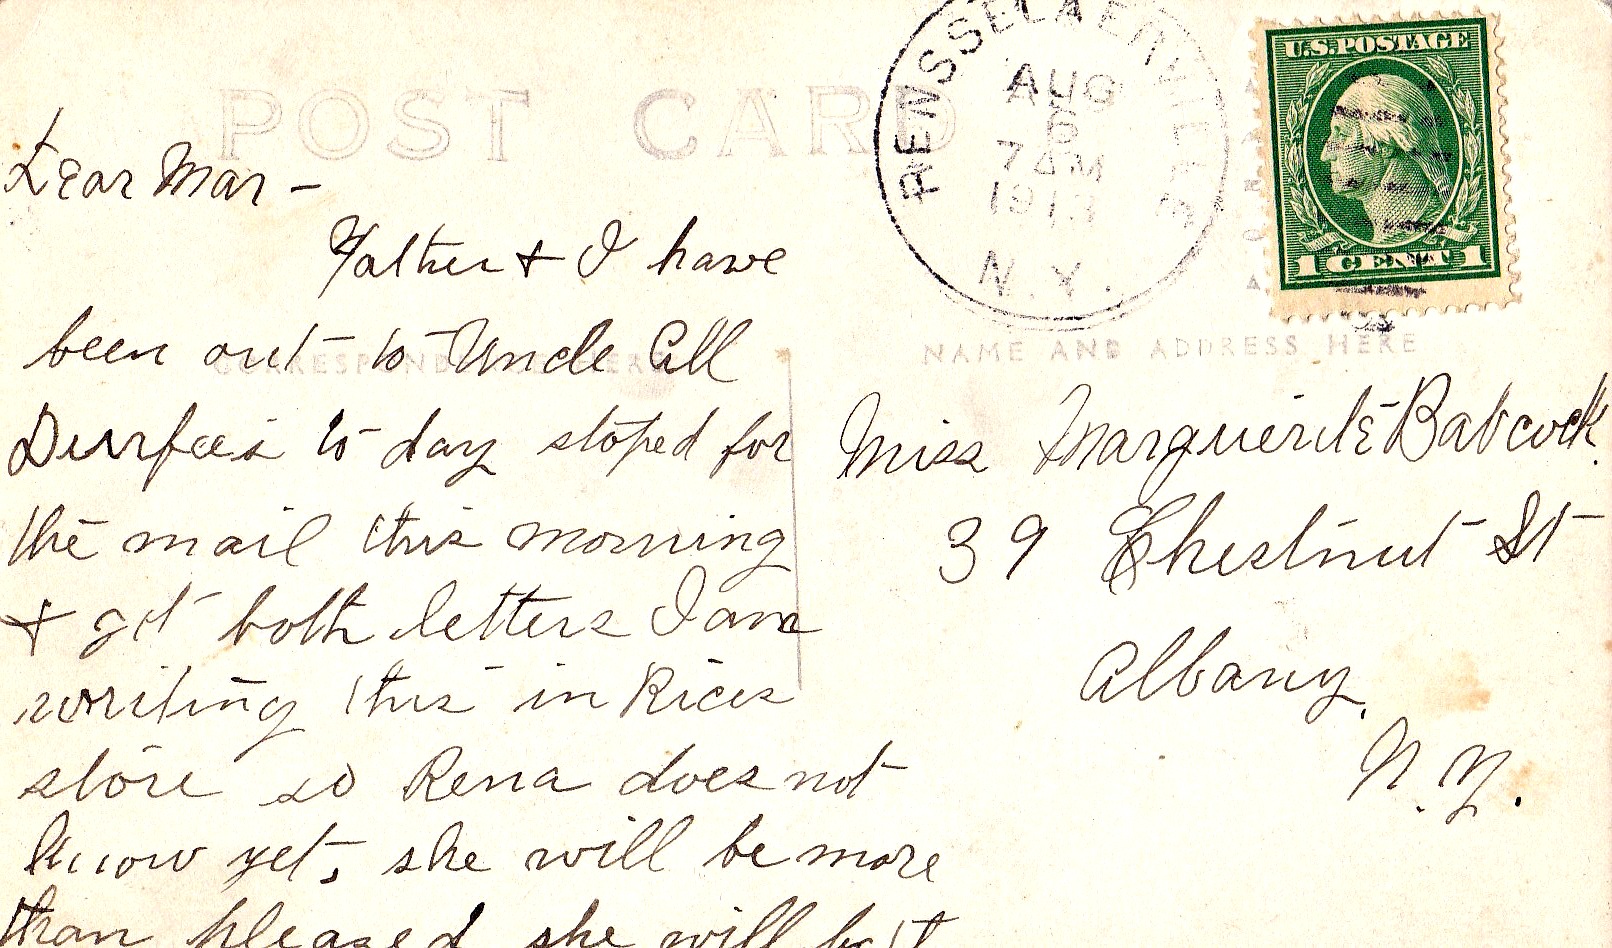 POST CARD
RENSSELAERVILLE
AUG
6
7 AM
1913
N.Y.
U.S. POSTAGE
1 CENT 1
CORRESPONDENCE HERE
NAME AND ADDRESS HERE
Dear Mar -
Father + I have
been out to Uncle All
Durfees to day stoped for
the mail this morning
+ got both letters I am
writing this in Rices
store so Rena does not
know yet, she will be more
than pleased she will
Miss Marguerite Babcock.
39 Chestnut St
Albany,
N.Y.